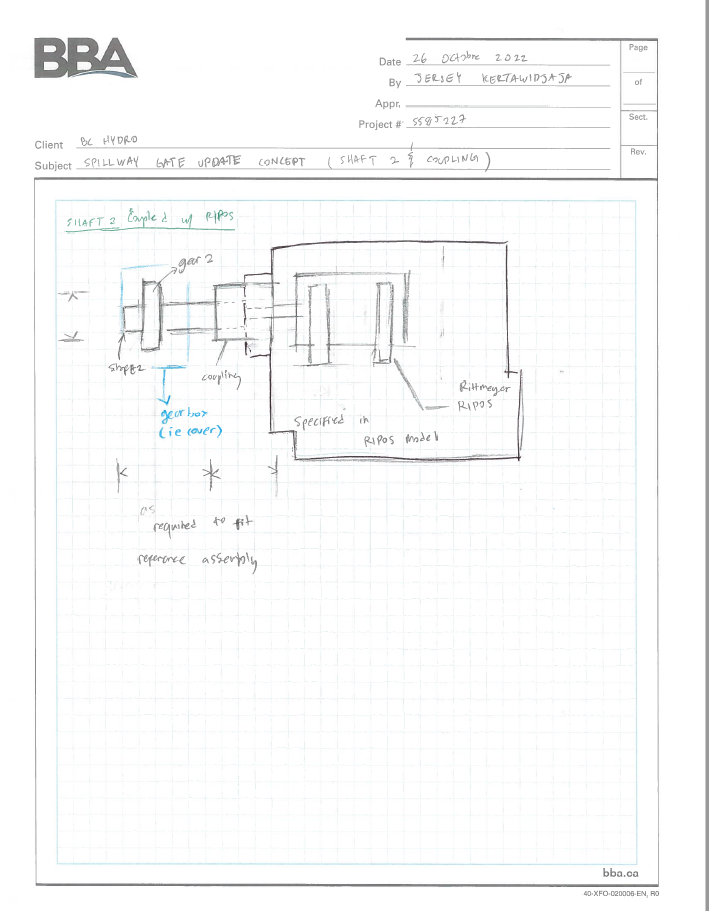 BBA
Page
Date 26 OCTObre 2022
of
By JERSEY KERTAWIDJAJA
Appr.
Project # 5585227
Sect.
Client BC HYDRO
Rev.
Subject SPILLWAY GATE UPDATE CONCEPT ( SHAFT 2 & COUPLING )
SHAFT 2 Coupled w/ RIPOS
gear 2
shaft 2
coupling
Rittmeyer
RIPOS
gearbox
(ie cover)
Specified in
RIPOS model
as
required to fit
reference assembly
bba.ca
40-XFO-020006-EN, R0